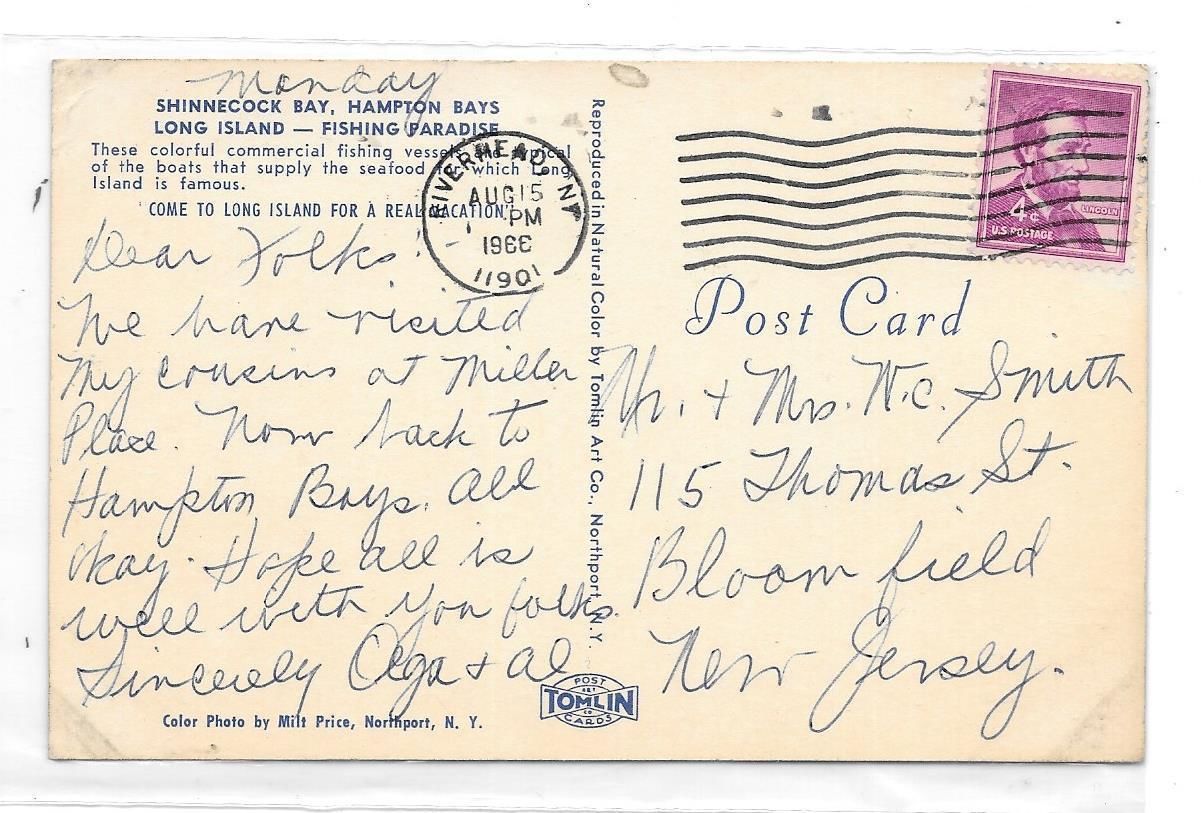 Monday
SHINNECOCK BAY, HAMPTON BAYS
LONG ISLAND — FISHING PARADISE
These colorful commercial fishing vessels are typical
of the boats that supply the seafood for which Long
Island is famous.
"COME TO LONG ISLAND FOR A REAL VACATION."
Dear Folks!
We have visited
My cousins at Miller
Place. Now back to
Hampton Bays. All
okay. Hope all is
well with you folks.
Sincerely Olga + Al
Color Photo by Milt Price, Northport, N. Y.
RIVERHEAD, NY
AUG 15
PM
1966
11901
Reproduced in Natural Color by Tomlin Art Co., Northport, N. Y.
POST
ART
TOMLIN
CO
CARDS
4¢
LINCOLN
U.S. POSTAGE
Post Card
Mr. + Mrs. W.C. Smith
115 Thomas St.
Bloomfield
New Jersey.